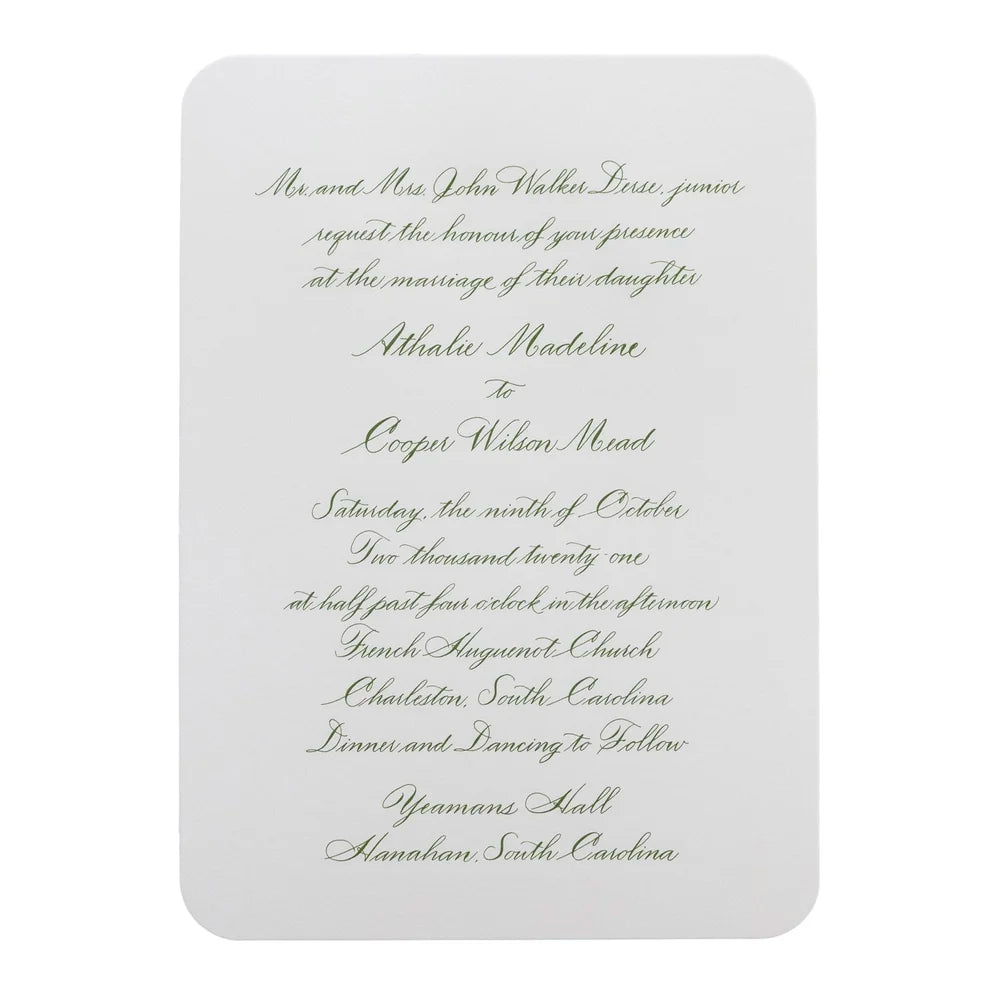 Mr. and Mrs. John Walker Derse, junior
request the honour of your presence
at the marriage of their daughter
Athalie Madeline
to
Cooper Wilson Mead
Saturday, the ninth of October
Two thousand twenty-one
at half past four o'clock in the afternoon
French Huguenot Church
Charleston, South Carolina
Dinner and Dancing to Follow
Yeamans Hall
Hanahan, South Carolina